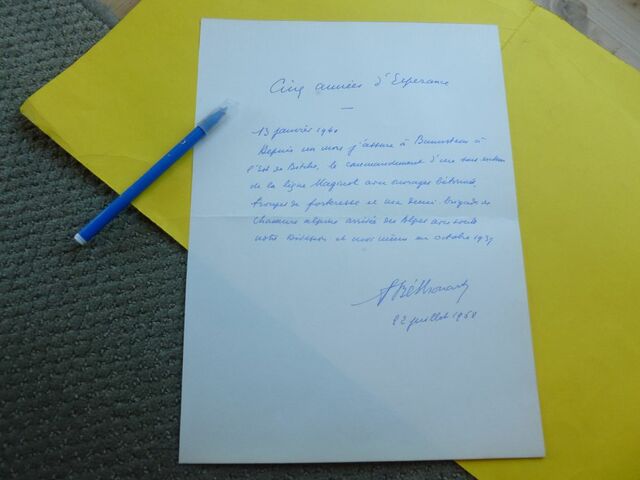 Cinq années d'Espérance
13 janvier 1940
Depuis un mois j'assure à Bannstein à
l'Est de Bitche, le commandement d'un sous secteur
de la ligne Maginot avec ouvrages bétonnés,
troupes de forteresse et une demi brigade de
chasseurs alpins arrivée des Alpes avec toute
notre Division et moi même en octobre 1939
Béthouart
22 juillet 1968